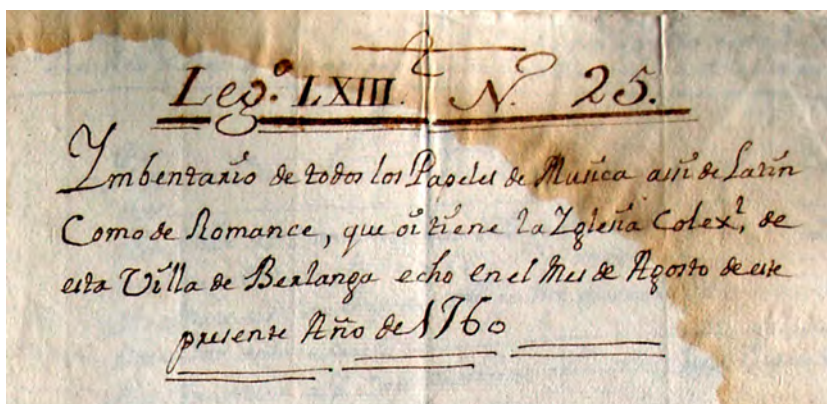 Leg.º LXIII. N. 25.
Ymbentario de todos los Papeles de Musica assi de Latin
Como de Romance, que oi tiene la Yglesia Colex.l, de
esta Villa de Berlanga echo en el Mes de Agosto de este
presente Año de 1760